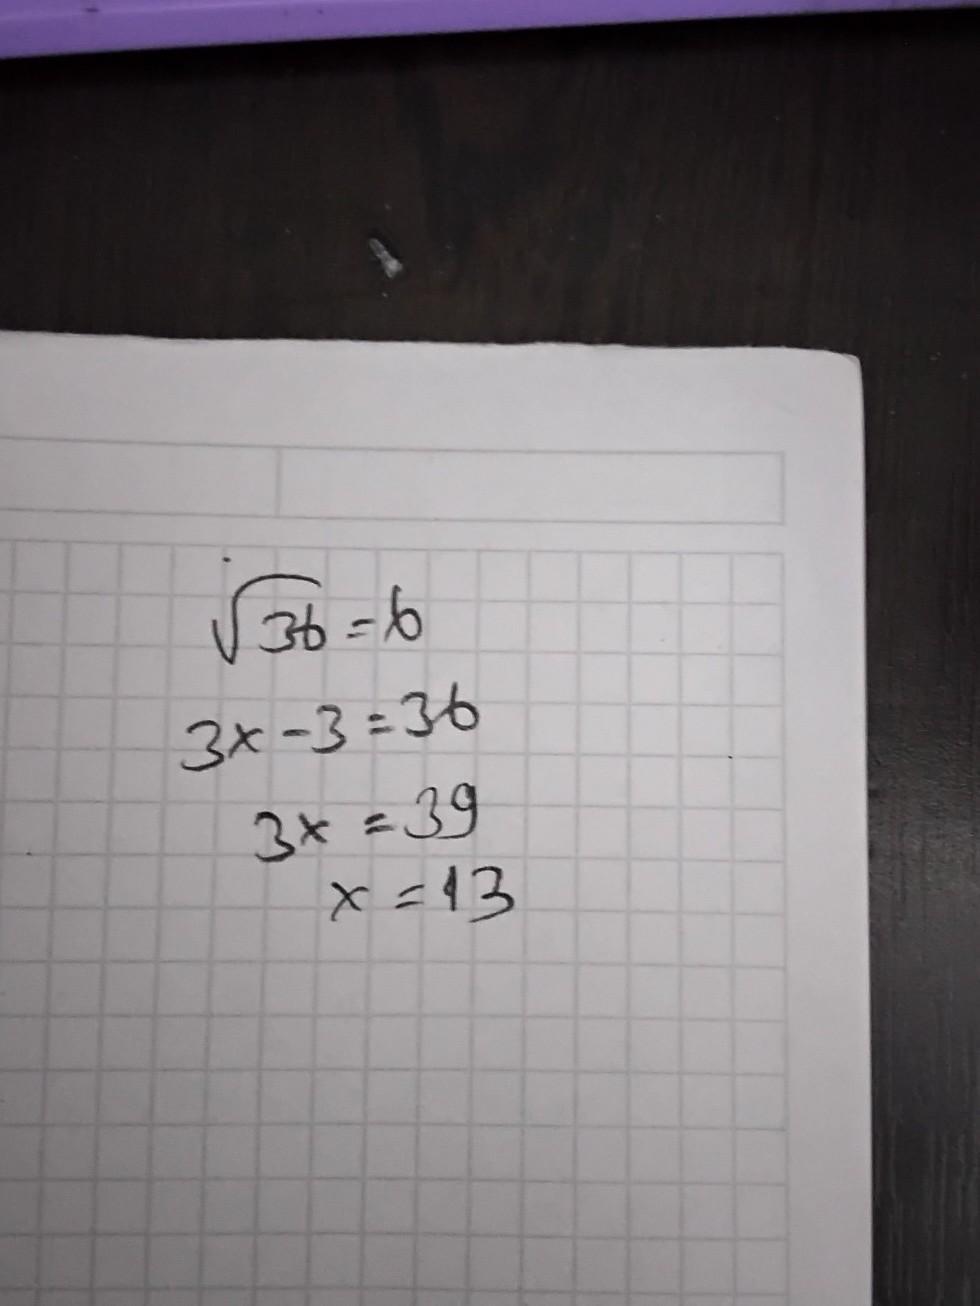 √36 = 6
3x - 3 = 36
3x = 39
x = 13